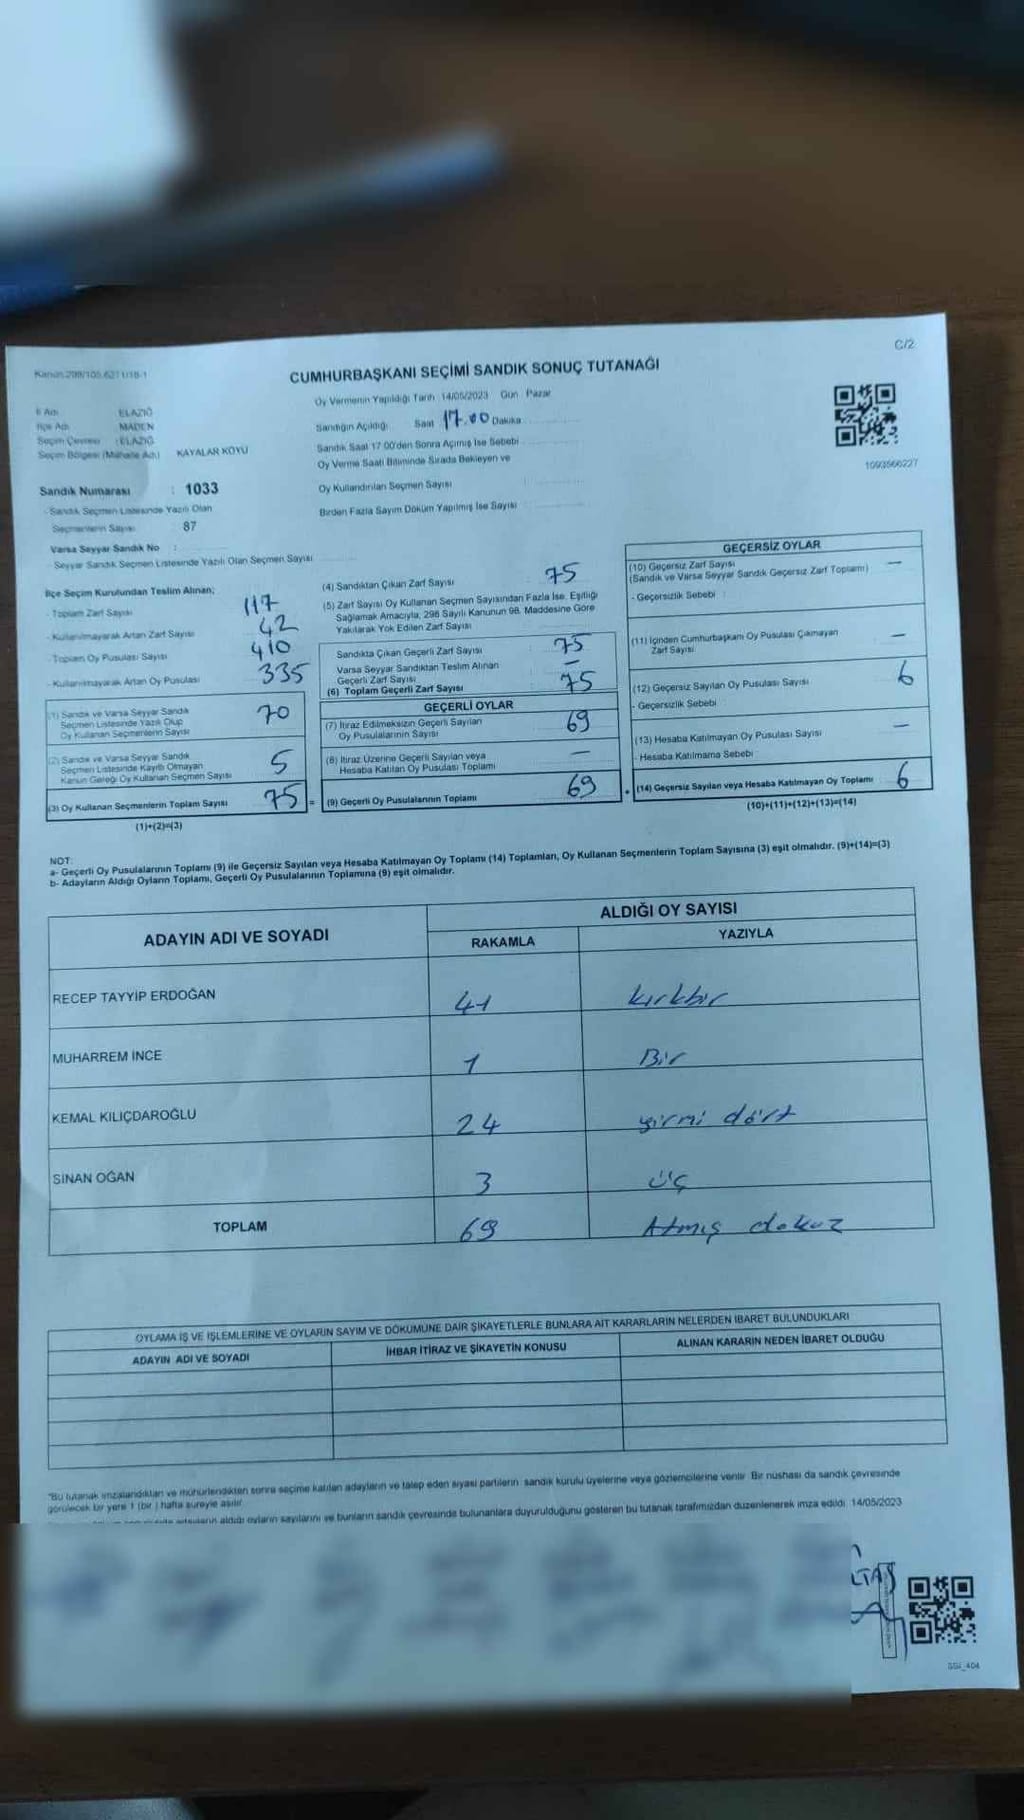 C/2
Kanun 298/105,6271/18-1
CUMHURBAŞKANI SEÇİMİ SANDIK SONUÇ TUTANAĞI
İl Adı ELAZIĞ
İlçe Adı MADEN
Seçim Çevresi : ELAZIĞ
Seçim Bölgesi (Mahalle Adı) KAYALAR KÖYÜ
Sandık Numarası : 1033
- Sandık Seçmen Listesinde Yazılı Olan
Seçmenlerin Sayısı 87
Varsa Seyyar Sandık No :
- Seyyar Sandık Seçmen Listesinde Yazılı Olan Seçmen Sayısı
Oy Vermenin Yapıldığı Tarih 14/05/2023 Gün Pazar
Sandığın Açıldığı Saat 17.00 Dakika
Sandık Saat 17 00'den Sonra Açılmış İse Sebebi
Oy Verme Saati Bitiminde Sırada Bekleyen ve
Oy Kullandırılan Seçmen Sayısı
Birden Fazla Sayım Döküm Yapılmış İse Sayısı
1093566227
İlçe Seçim Kurulundan Teslim Alınan;
- Toplam Zarf Sayısı 117
- Kullanılmayarak Artan Zarf Sayısı 42
- Toplam Oy Pusulası Sayısı 410
- Kullanılmayarak Artan Oy Pusulası 335
(1) Sandık ve Varsa Seyyar Sandık
Seçmen Listesinde Yazılı Olup
Oy Kullanan Seçmenlerin Sayısı 70
(2) Sandık ve Varsa Seyyar Sandık
Seçmen Listesinde Kayıtlı Olmayan
Kanun Gereği Oy Kullanan Seçmen Sayısı 5
(3) Oy Kullanan Seçmenlerin Toplam Sayısı 75 =
(1)+(2)=(3)
(4) Sandıktan Çıkan Zarf Sayısı 75
(5) Zarf Sayısı Oy Kullanan Seçmen Sayısından Fazla İse, Eşitliği
Sağlamak Amacıyla, 298 Sayılı Kanunun 98. Maddesine Göre
Yakılarak Yok Edilen Zarf Sayısı
Sandıkta Çıkan Geçerli Zarf Sayısı 75
Varsa Seyyar Sandıktan Teslim Alınan
Geçerli Zarf Sayısı —
(6) Toplam Geçerli Zarf Sayısı 75
GEÇERLİ OYLAR
(7) İtiraz Edilmeksizin Geçerli Sayılan
Oy Pusulalarının Sayısı 69
(8) İtiraz Üzerine Geçerli Sayılan veya
Hesaba Katılan Oy Pusulası Toplamı —
(9) Geçerli Oy Pusulalarının Toplamı 69 +
GEÇERSİZ OYLAR
(10) Geçersiz Zarf Sayısı
(Sandık ve Varsa Seyyar Sandık Geçersiz Zarf Toplamı) —
- Geçersizlik Sebebi :
(11) İçinden Cumhurbaşkanı Oy Pusulası Çıkmayan
Zarf Sayısı —
(12) Geçersiz Sayılan Oy Pusulası Sayısı 6
- Geçersizlik Sebebi
(13) Hesaba Katılmayan Oy Pusulası Sayısı —
- Hesaba Katılmama Sebebi
(14) Geçersiz Sayılan veya Hesaba Katılmayan Oy Toplamı 6
(10)+(11)+(12)+(13)=(14)
NOT:
a- Geçerli Oy Pusulalarının Toplamı (9) ile Geçersiz Sayılan veya Hesaba Katılmayan Oy Toplamı (14) Toplamları, Oy Kullanan Seçmenlerin Toplam Sayısına (3) eşit olmalıdır. (9)+(14)=(3)
b- Adayların Aldığı Oyların Toplamı, Geçerli Oy Pusulalarının Toplamına (9) eşit olmalıdır.
ADAYIN ADI VE SOYADI
ALDIĞI OY SAYISI
RAKAMLA YAZIYLA
RECEP TAYYİP ERDOĞAN 41 kırkbir
MUHARREM İNCE 1 Bir
KEMAL KILIÇDAROĞLU 24 yirmi dört
SİNAN OĞAN 3 üç
TOPLAM 69 Atmış dokuz
OYLAMA İŞ VE İŞLEMLERİNE VE OYLARIN SAYIM VE DÖKÜMÜNE DAİR ŞİKAYETLERLE BUNLARA AİT KARARLARIN NELERDEN İBARET BULUNDUKLARI
ADAYIN ADI VE SOYADI İHBAR İTİRAZ VE ŞİKAYETİN KONUSU ALINAN KARARIN NEDEN İBARET OLDUĞU
*Bu tutanak imzalandıktan ve mühürlendikten sonra seçime katılan adayların ve talep eden siyasi partilerin sandık kurulu üyelerine veya gözlemcilerine verilir. Bir nüshası da sandık çevresinde
görülecek bir yere 1 (bir) hafta süreyle asılır.
adayların aldığı oyların sayılarını ve bunların sandık çevresinde bulunanlara duyurulduğunu gösteren bu tutanak tarafımızdan düzenlenerek imza edildi. 14/05/2023